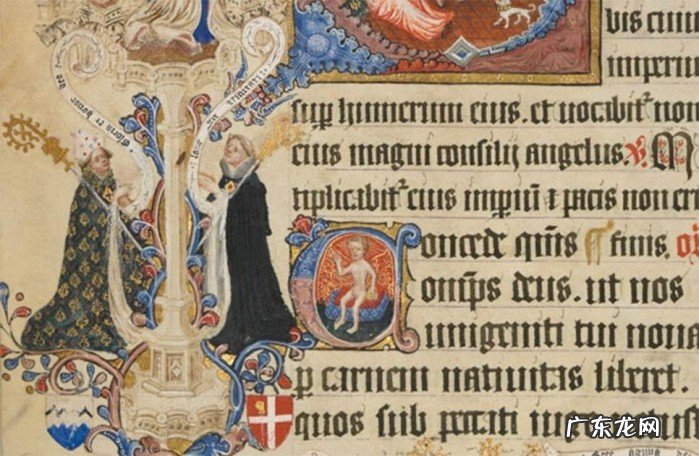 bis cuiu
imperiu
sup humerum eius. et vocabit' nom
eius magni consilij angelus. V M
tiplicabit' eius imperiũ & pacis non eri
Gloria et honor deo
Concede quis finis.
omps deus. ut nos
unigeniti tui noua
p carnem natiuitas liberet.
quos sub peccati
广东龙网